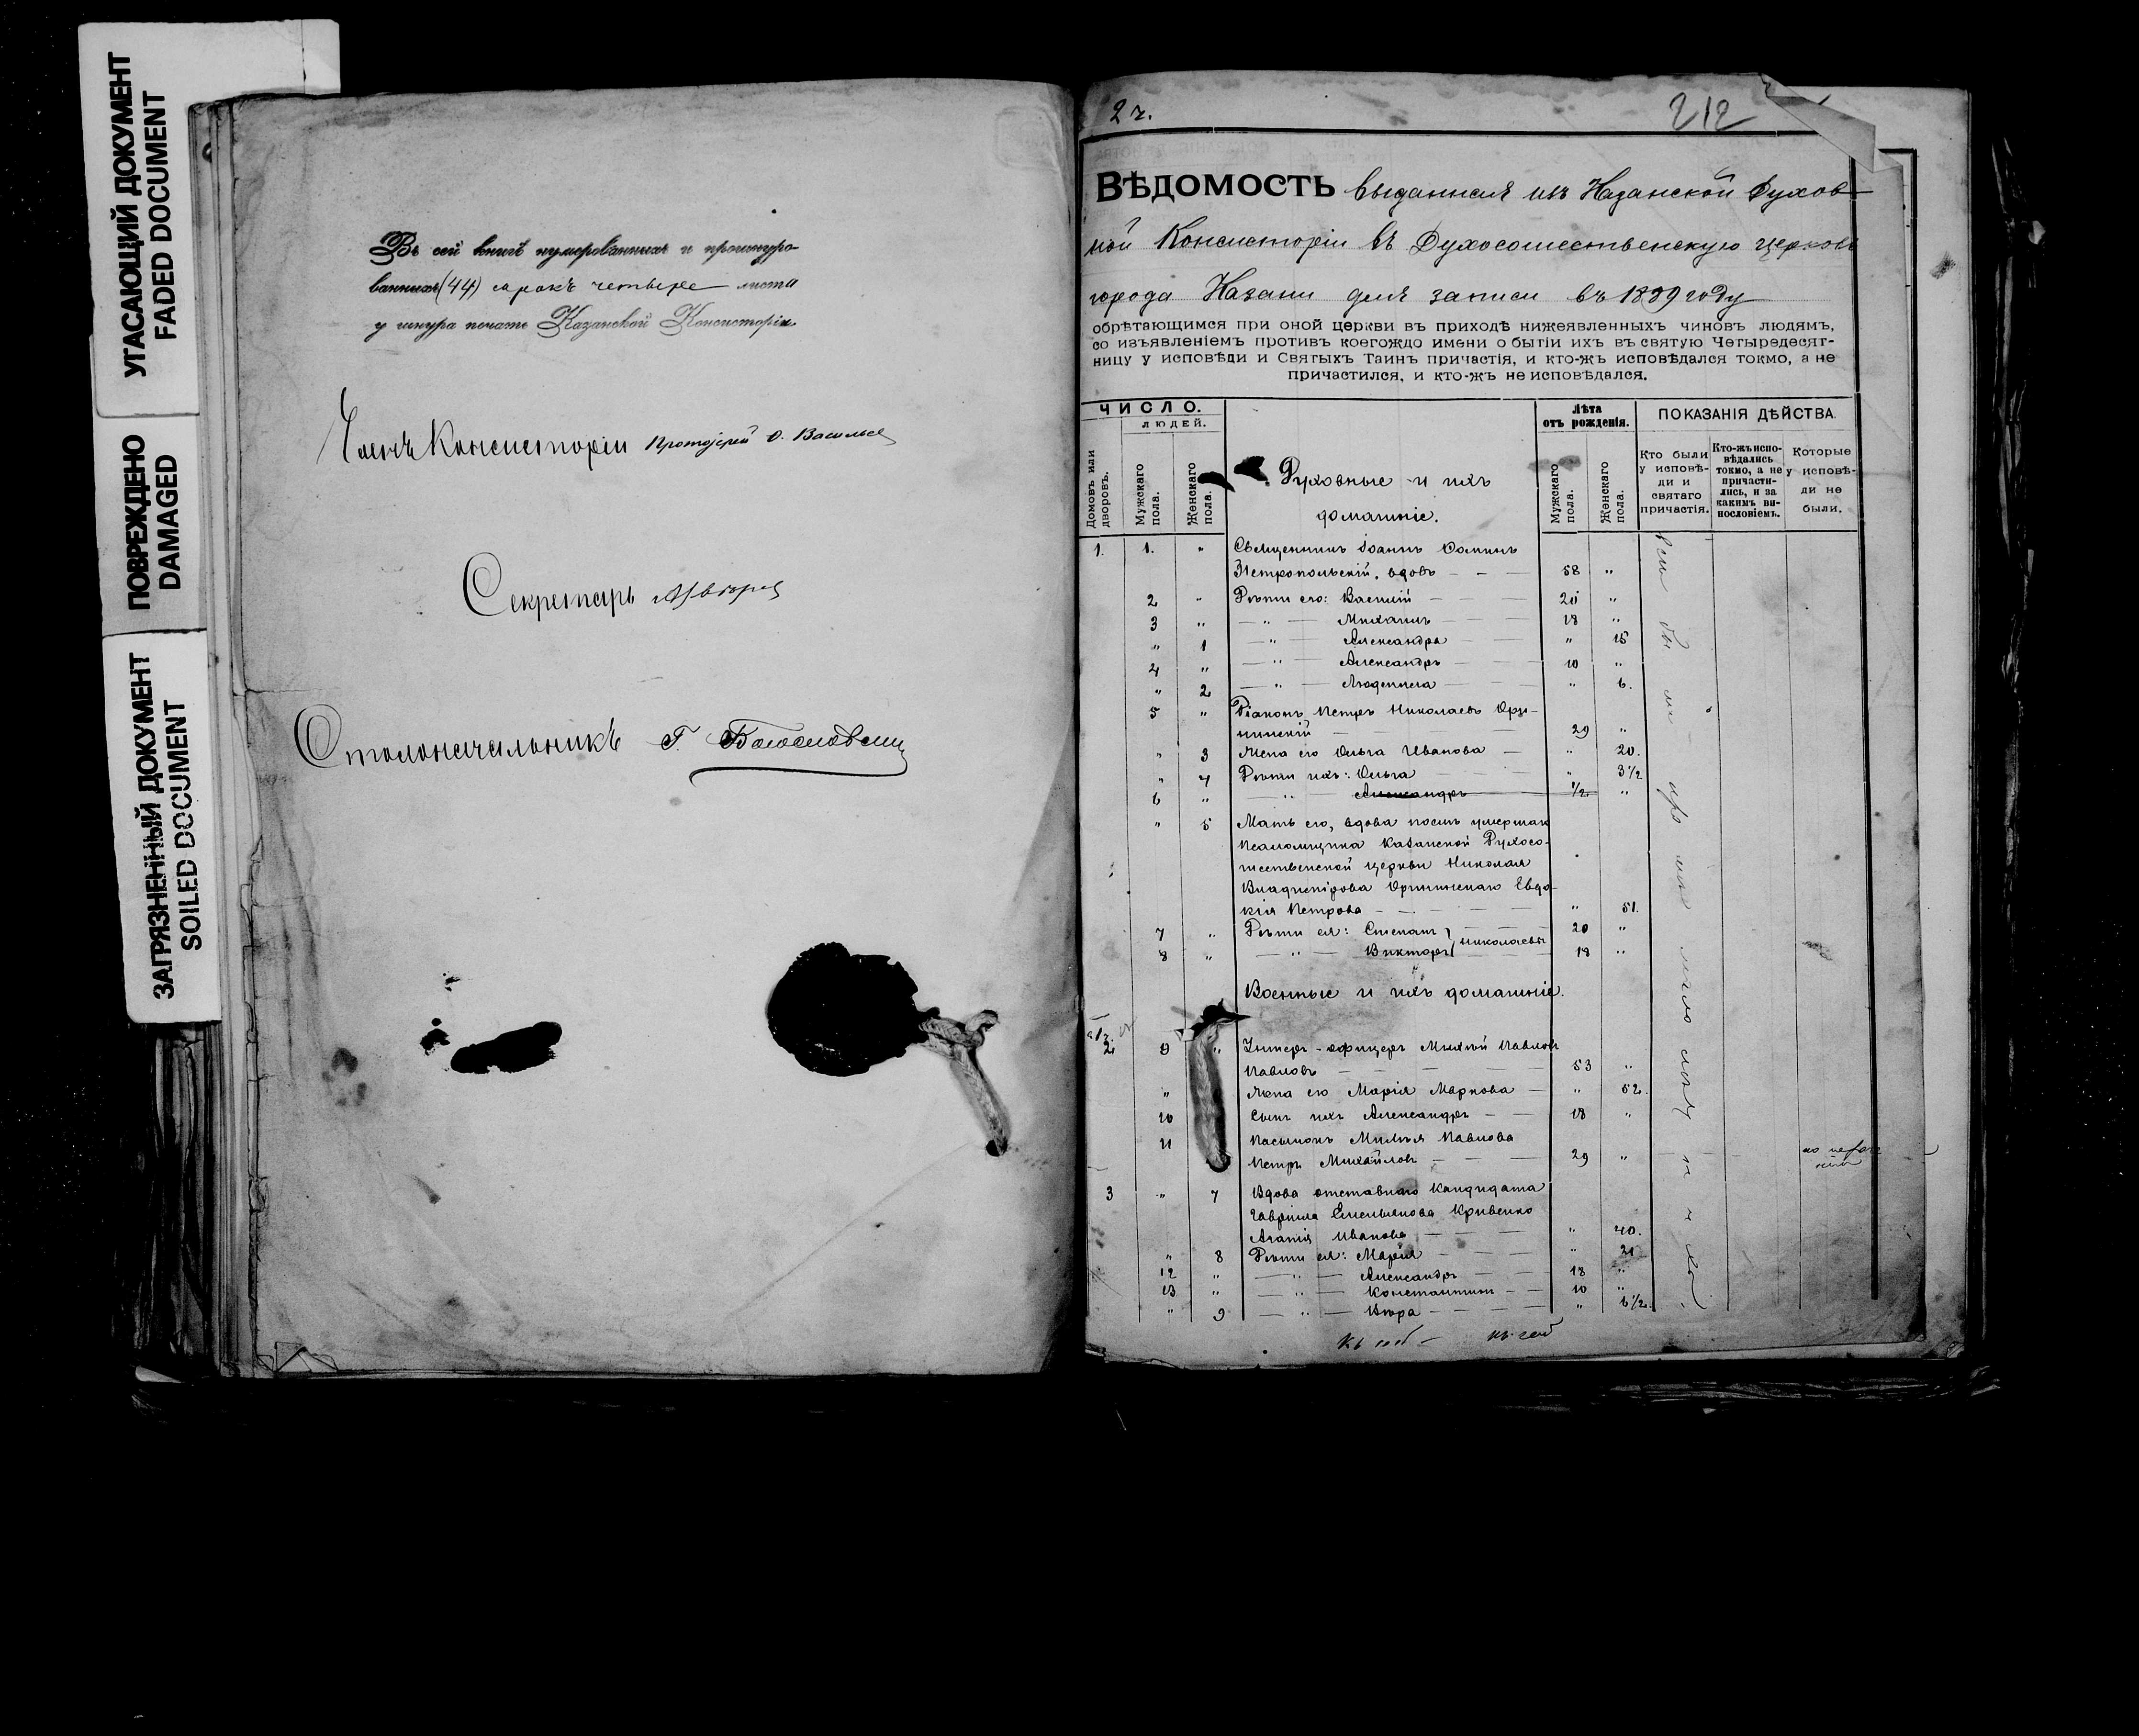 УГАСАЮЩИЙ ДОКУМЕНТ
FADED DOCUMENT
ПОВРЕЖДЕНО
DAMAGED
ЗАГРЯЗНЕННЫЙ ДОКУМЕНТ
SOILED DOCUMENT
Въ сей книгѣ нумерованныхъ и прошнуро-
ванныхъ (44) сорокъ четыре листа
у шнура печать Казанской Консисторіи.
Членъ Консисторіи Протоіерей
Секретарь
Столоначальникъ Г. Богословскій
2 ч.
212
ВѢДОМОСТЬ выданная изъ Казанской Духов-
ной Консисторіи въ Духосошественскую церковь
города Казани для записи въ 1899 году
обрѣтающимся при оной церкви въ приходѣ нижеявленныхъ чиновъ людямъ,
со изъявленіемъ противъ коегождо имени о бытіи ихъ въ святую Четыредесят-
ницу у исповѣди и Святыхъ Таинъ причастія, и кто-жъ исповѣдался токмо, а не
причастился, и кто-жъ не исповѣдался.
ЧИСЛО.
ЛЮДЕЙ.
Домовъ или дворовъ.
Мужскаго пола.
Женскаго пола.
Духовные и ихъ
домашніе.
Лѣта
отъ рожденія.
Мужскаго пола.
Женскаго пола.
ПОКАЗАНІЯ ДѢЙСТВА.
Кто были у исповѣ-ди и святаго причастія.
Кто-жъ испо-вѣдались токмо, а не причасти-лись, и за какимъ ви-нословіемъ.
Которые у исповѣ-ди не были.
1. 1. " Священникъ Іоаннъ
вдовъ — 58 "
2 " Дѣти его: Василій — 20 "
3 " — " — Михаилъ — 18 "
" 1 — " — Александра — " 15
4 " — " — Александръ — 10 "
" 2 — " — Людмила — " 6.
5 " Діаконъ Петръ Николаевъ Ори-
нинскій — 29 "
" 3 Жена его Ольга Иванова — " 20.
" 4 Дѣти ихъ: Ольга — " 3½
6 " — " — Александръ — ½ "
" 5 Мать его, вдова послѣ умершаго
Псаломщика Казанской Духосо-
шественской церкви Николая
Владимірова Орининскаго Евдо-
кія Петрова — " 51.
7 " Дѣти ея: Степанъ — 20 "
8 " — " — Викторъ Николаевы — 18 "
Военные и ихъ домашніе.
2 9 " Унтеръ-офицеръ Михѣй Павловъ
Павловъ — 53 "
" Жена его Марія Маркова — " 52.
10 Сынъ ихъ Александръ — 18 "
11 Пасынокъ Михѣя Павлова
Петръ Михайловъ — 29 "
3 " 7 Вдова отставнаго кандидата
Гавріила Емельянова Кривенко
Агапія Иванова — " 40.
" 8 Дѣти ея: Марія — " 21
12 " — " — Александръ — 18 "
13 " — " — Константинъ — 10 "
" 9 — " — Вѣра — " 6½.